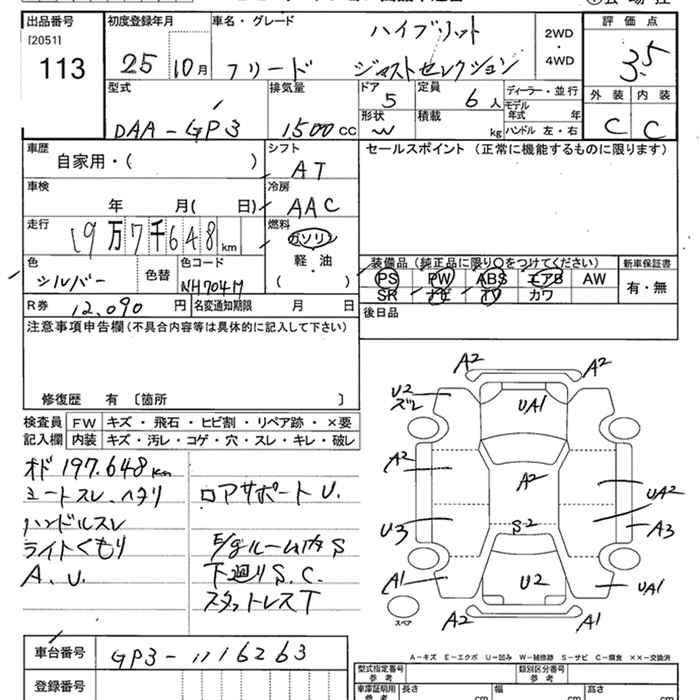 出品番号
[2051]
113
初度登録年月
25 10月
車名・グレード
ハイブリット
フリード ジャストセレクション
2WD
・
4WD
評価点
3.5
型式
DAA-GP3
排気量
1500 CC
ドア
5
定員
6人
ディーラー・並行
モデル
年式 年
形状
W
積載
kg
ハンドル 左・右
外装 内装
C C
車歴
自家用・( )
シフト
AT
セールスポイント (正常に機能するものに限ります)
車検
年 月( 日)
冷房
AAC
走行
19万7千648km
燃料
ガソリン
軽・油
( )
色
シルバー
色替
色コード
NH704M
装備品 (純正品に限り○をつけてください)
PS PW ABS エアB AW
SR ナビ TV カワ
新車保証書
有・無
R券 12,090円
名変通知期限 月 日
後日品
注意事項申告欄 (不具合内容等は具体的に記入して下さい)
修復歴 有 〔箇所 〕
検査員
記入欄
FW キズ・飛石・ヒビ割・リペア跡・×要
内装 キズ・汚レ・コゲ・穴・スレ・キレ・破レ
オド197.648km
シートスレ ヘタリ
ハンドルスレ
ライトくもり
A、U.
ロアサポートU.
E/gルーム内S
下廻りS.C.
スタットレスT
A2 A2
U2
ズレ
UA1
A2
A2
UA2
U3
S2
A3
A1
U2
UA1
A2 A1
スペア
A-キズ E-エクボ U-凹み W-補修跡 S-サビ C-腐食 ××-交換済
車台番号
GP3-1116263
登録番号
型式指定番号
参考
類別区分番号
参考
車庫証明用
参考
長さ cm
幅 cm
高さ cm